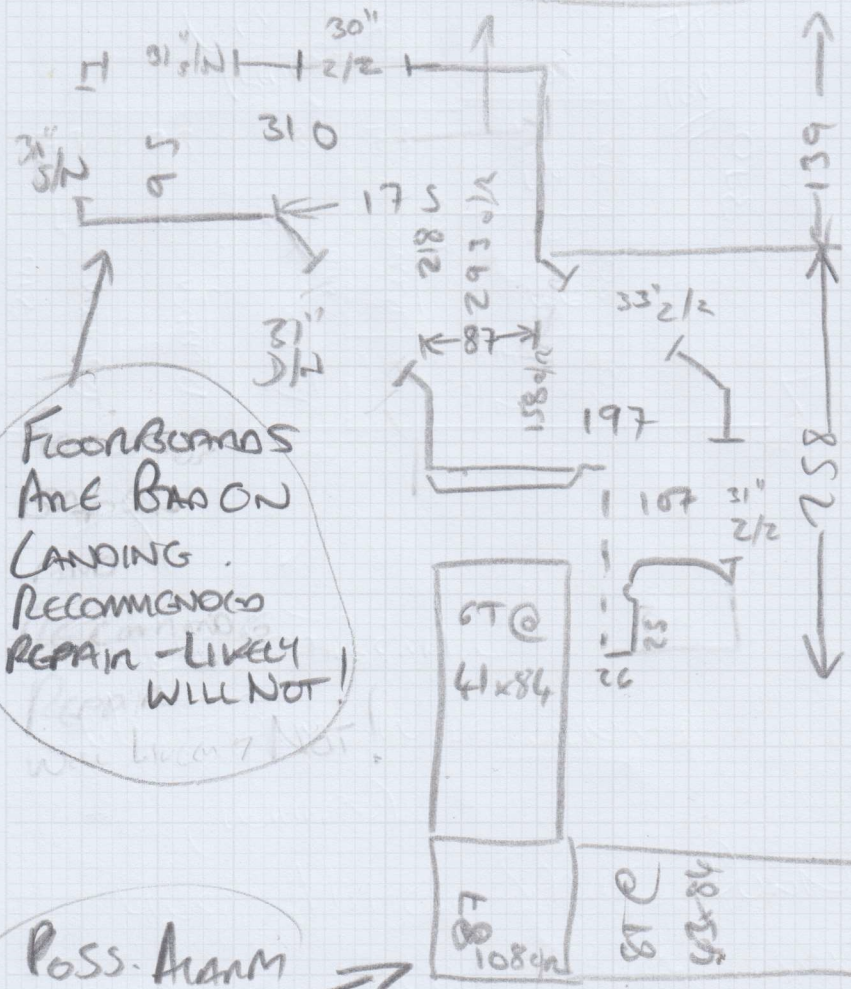 30"
31" S/N
2/2
139
31" S/N
95
310
175
218
293 o/r
33" 2/2
31"
D/N
87
158 o/r
197
258
FLOORBOARDS
ARE BAD ON
LANDING.
RECOMMENDED
REPAIR - LIKELY
WILL NOT!
107
31"
2/2
6T @
41x84
25
26
87
108 o/r
8T @
POSS. ALARM